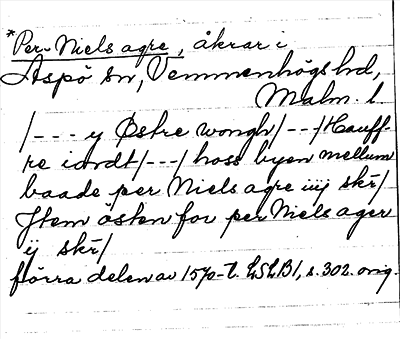 *Per-Niels agre, åkrar i
Aspö sn, Vemmenhögs hd,
Malm. l.
/--- y Østre wongh/--/Hauff-
re iordt/---/hoss byen mellum
baade per Niels agre iiij skr/
Jtem östen for per Niels ager
ij skr/
förra delen av 1570-t. LSLB1, s. 302. orig.